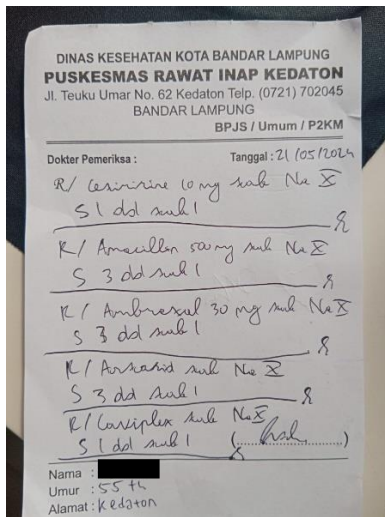 DINAS KESEHATAN KOTA BANDAR LAMPUNG
PUSKESMAS RAWAT INAP KEDATON
Jl. Teuku Umar No. 62 Kedaton Telp. (0721) 702045
BANDAR LAMPUNG
BPJS / Umum / P2KM
Dokter Pemeriksa : Tanggal : 21/05/2024
R/ Cetirizine 10 mg tab No X
S 1 dd tab 1
R/ Amoxicillin 500 mg tab No X
S 3 dd tab 1
R/ Ambroxol 30 mg tab No X
S 3 dd tab 1
R/ Antasid tab No X
S 3 dd tab 1
R/ Caviplex tab No X
S 1 dd tab 1 (..............)
Nama :
Umur : 55 th
Alamat : Kedaton